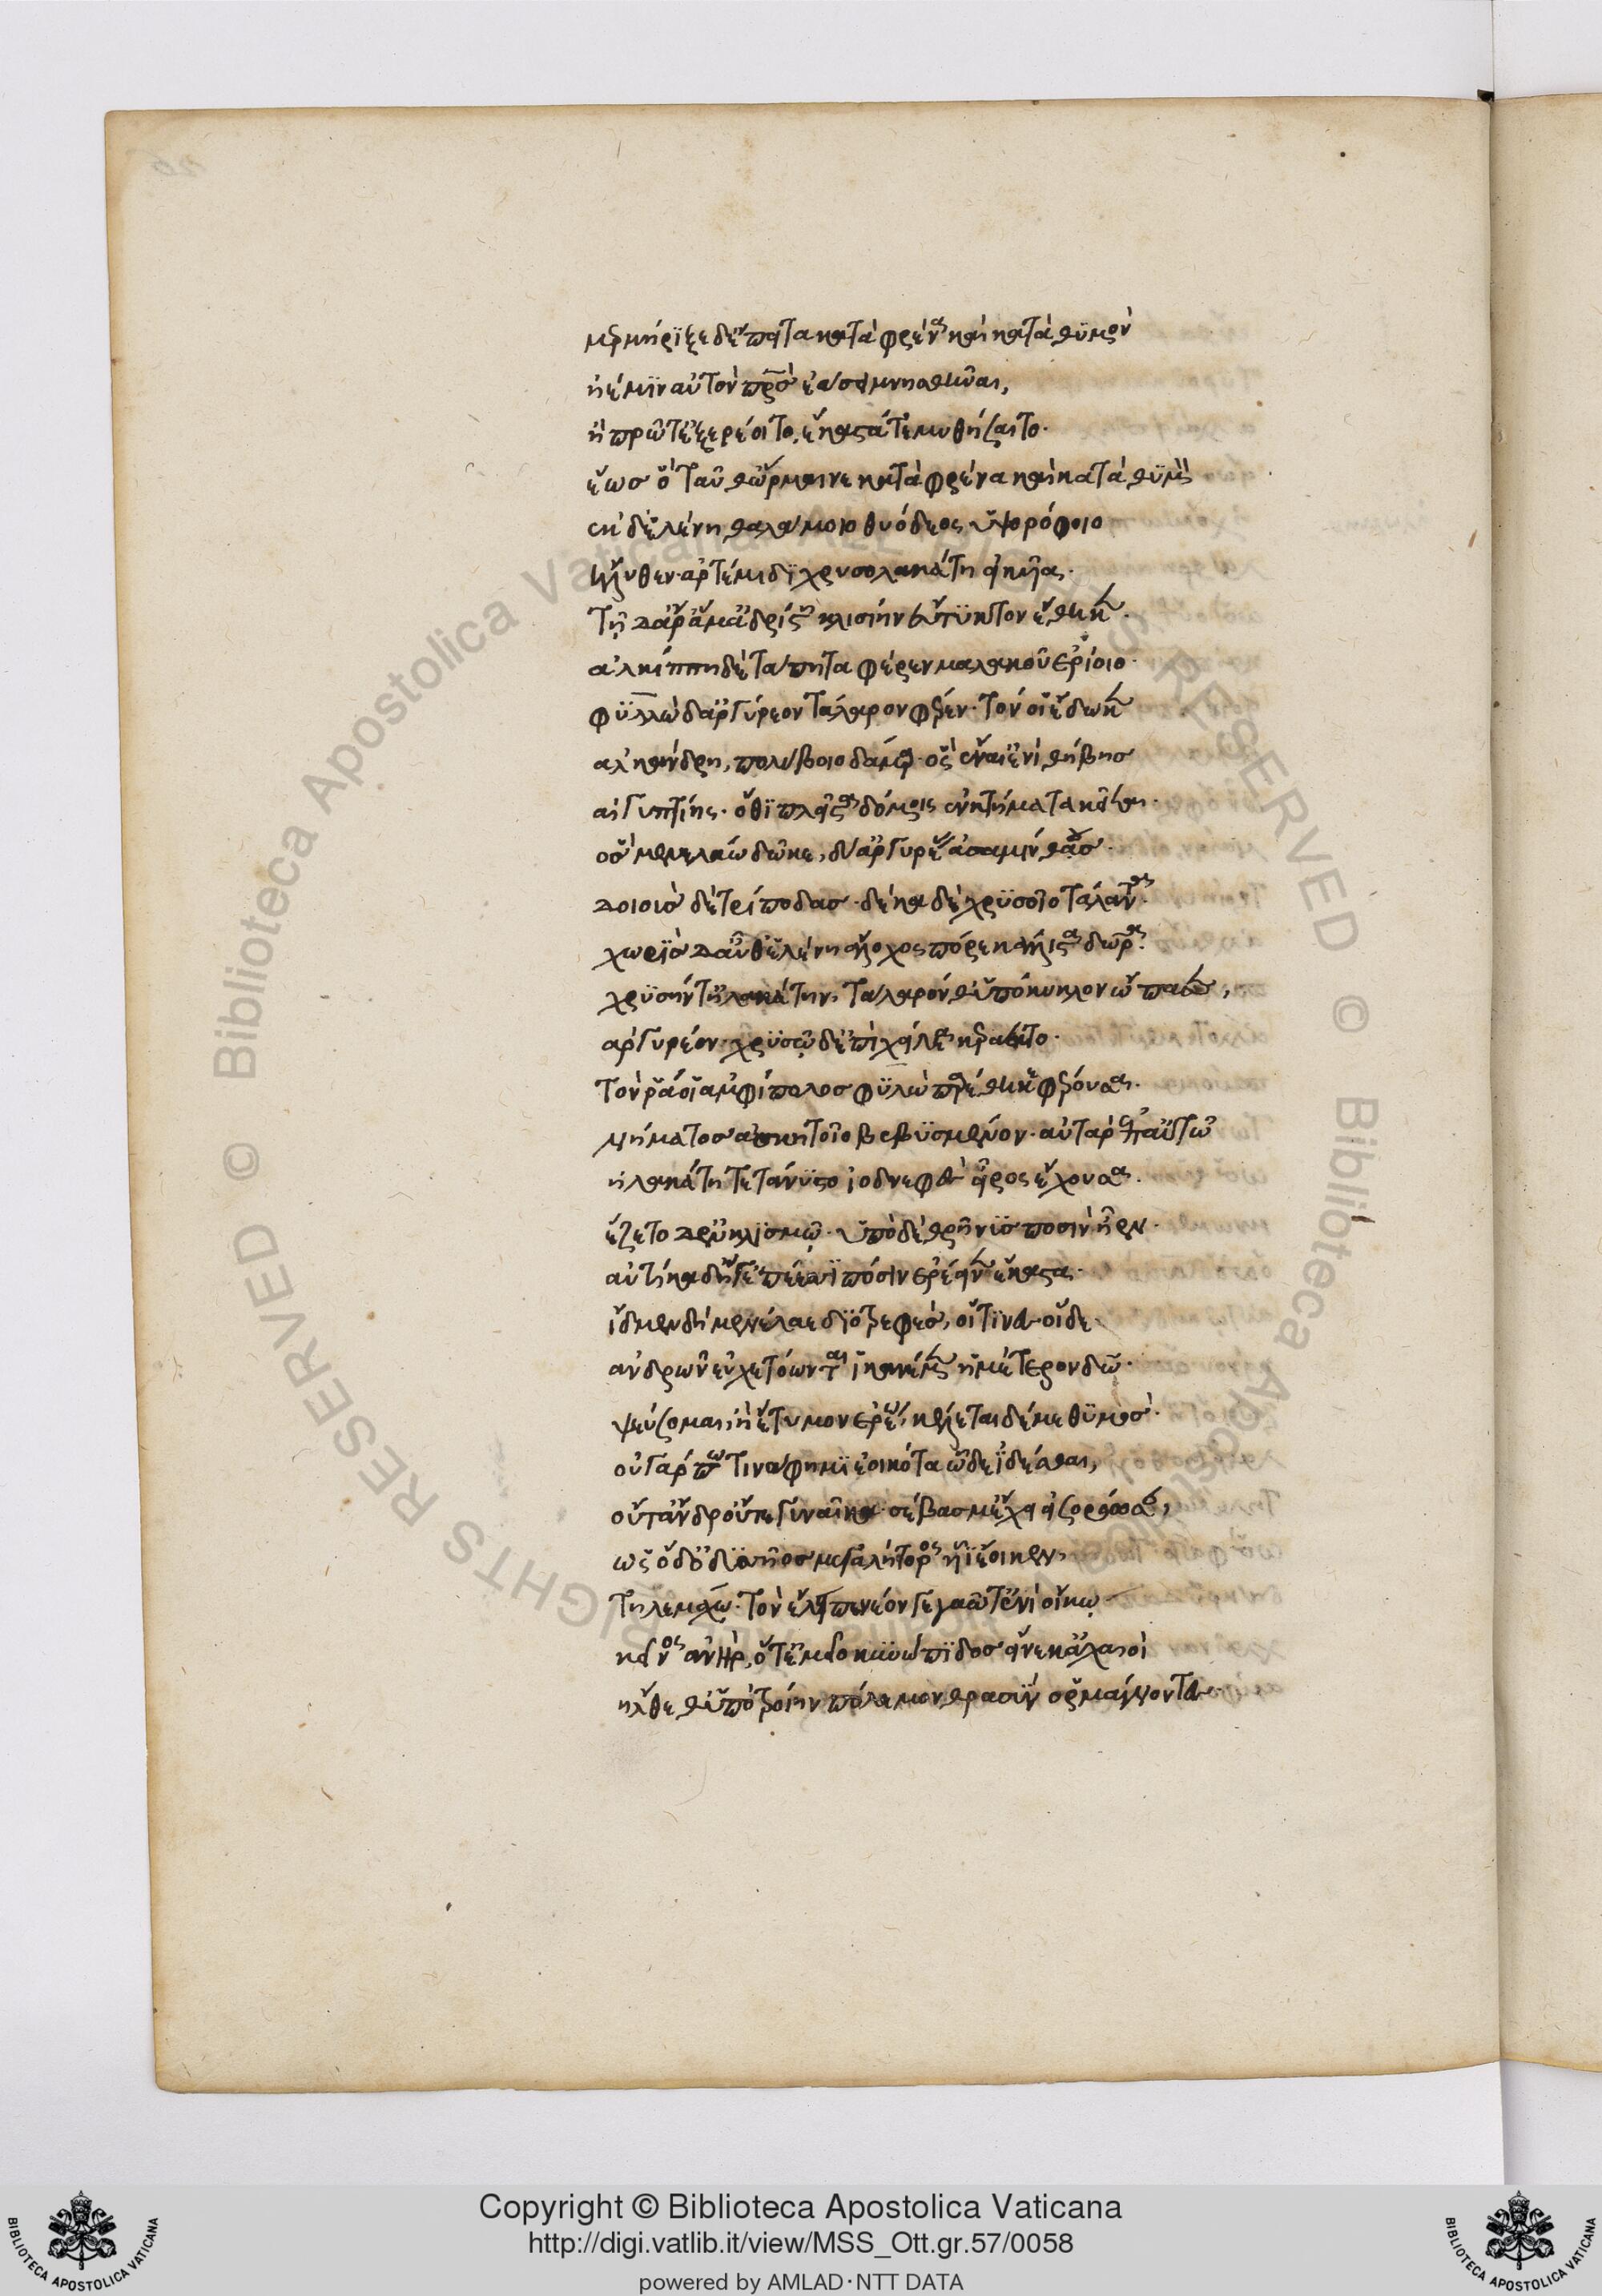 μερμήριξε δ' ἔπειτα κατὰ φρένα καὶ κατὰ θϋμὸν
ἠέ μϊν αὐτὸν πρσ̅ ἐάσει μνησθῆναι,
ἢ πρῶτ' ἐξερέοιτο, ἕκαστά τε μυθήσαιτο·
ἕωσ ὁ ταῦθ' ὥρμαινε κατὰ φρένα καὶ κατὰ θϋμὸν
ἐκ δ' ἑλένη θαλάμοιο θυόδεος ὑψορόφοιο
ἤλυθεν· ἀρτέμιδϊ χρυσολακάτη εἰκῆα·
τῆ δ' ἄρ' ἅμα ἀδρίστη κλισίην εὔτϋκτον ἔθηκεν·
ἀλκίππη δὲ τάπητα φέρεν μαλακοῦ ἐρίοιο·
φϋλλὼ δ' ἀργύρεον τάλαρον φέρεν· τόν οἱ ἔδωκεν
ἀλκάνδρη, πολύβοιο δάμαρ· ὃς ἔναι' ἐνὶ θήβησ
αἰγυπτίης· ὅθϊ πλεῖστα δόμοις ἐν κτήματα κεῖται·
ὃσ μενελάω δῶκε, δύ' ἀργυρέας ἀσαμίνθουσ·
δοιοὺσ δὲ τρίποδασ· δέκα δὲ χρϋσοῖο τάλαντα·
χωρῒσ δ' αὖθ' ἑλένη ἄλοχος πόρε κάλλιστα δῶρα·
χρϋσήν τ' ἠλακάτην, τάλαρόν θ' ὑπόκυκλον ὤπασεν,
ἀργυρέον· χρϋσῶ δ' ἐπὶ χείλεα κεκράαντο·
τόν ῥά οἱ ἀμφίπολοσ φϋλὼ παρέθηκε φέρουσα·
νήματοσ ἀσκητοῖο βεβϋσμένον· αὐτὰρ ἐπ' αὐτῶ
ἠλακάτη τετάνϋστο ἰοδνεφὲσ εἶρος ἔχουσα·
ἕζετο δ' ἐν κλϊσμῶ· ὑπὸ δὲ θρῆνϋσ ποσὶν ἦεν·
αὐτίκα δ' ἥγ' ἐπέεσσϊ πόσιν ἐρέεινεν ἕκαστα·
ἴδμεν δὴ μενέλαε δϊοτρεφὲσ, οἵτϊνεσ οἵδε
ἀνδρῶν εὐχετόωνται ἱκανέμεν ἡμέτερον δῶ·
ψεύσομαι, ἢ ἔτυμον ἐρέω, κέλεται δέ με θϋμόσ·
οὐ γάρ πώ τινα φημῒ ἐοικότα ὧδε ἰ̈δέσθαι,
οὔτ' ἄνδρ' οὔτε γυναῖκα· σέβασ μ' ἔχει εἰσορόωσαν,
ὡσ ὅδ' ὀδϋσσῆοσ μεγαλήτορος υἷϊ ἔοικεν,
τηλεμάχω· τὸν ἔλειπε νέον γεγαῶτ' ἐνὶ οἴκω
κεῖνος ἀνὴρ, ὅτ' ἐμεῖο κυνώπϊδοσ εἵνεκ' ἀχαιοὶ
ἤλθεθ' ὑπὸ τροίην πόλεμον θρασῢν ὁρμαίνοντεσ
Copyright © Biblioteca Apostolica Vaticana
http://digi.vatlib.it/view/MSS_Ott.gr.57/0058
powered by AMLAD·NTT DATA